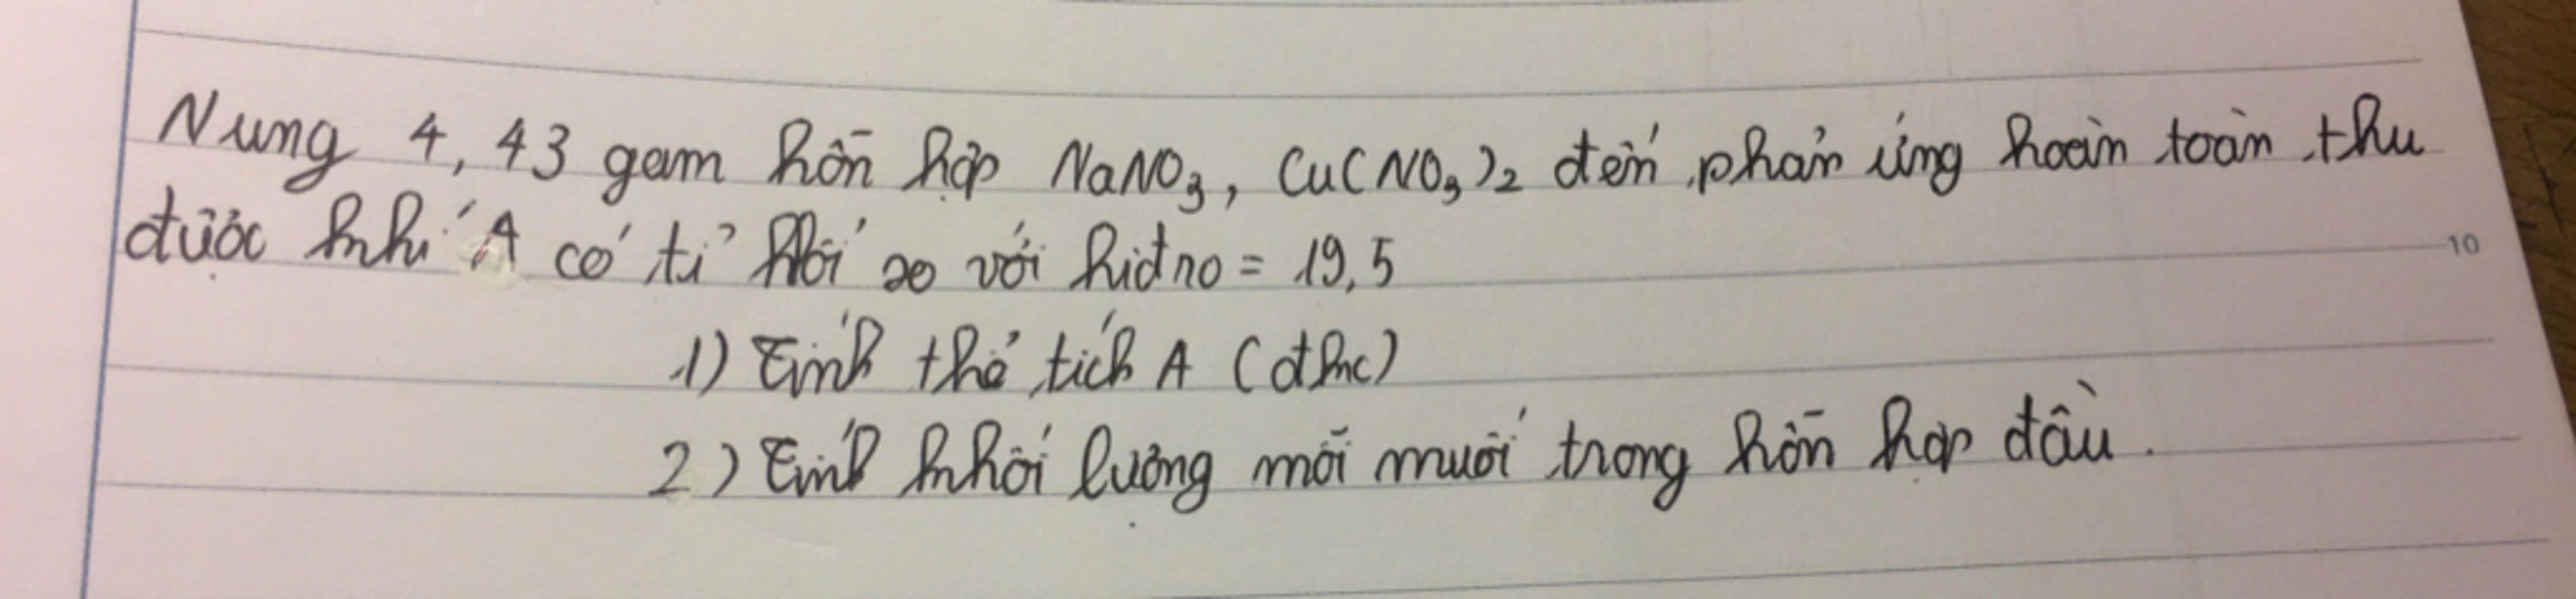 Nung 4,43 gam hỗn hợp NaNO₃, Cu(NO₃)₂ đến phản ứng hoàn toàn thu
được khí A có tỉ khối so với hiđro = 19,5
10
1) Tính thể tích A (đkc)
2) Tính khối lượng mỗi muối trong hỗn hợp đầu.